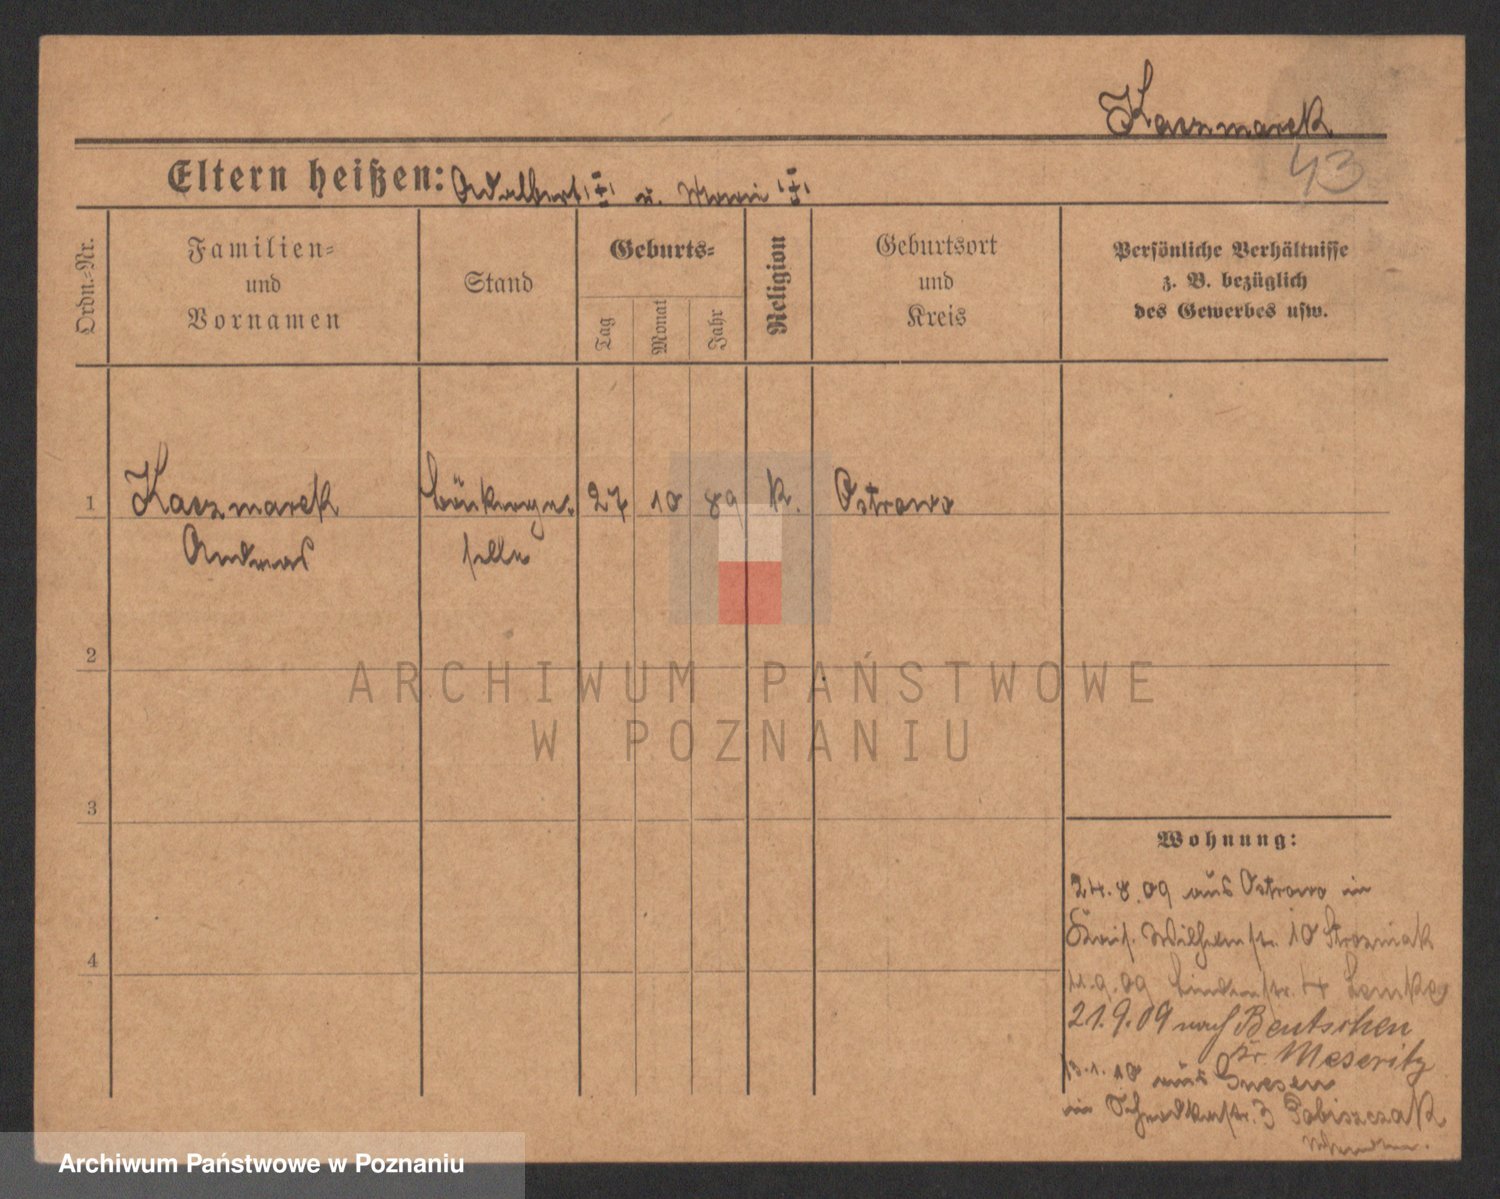 Kaczmarek
43
Eltern heißen: Adalbert u. Marie
Ordn.=Nr.
Familien=
und
Vornamen
Stand
Geburts=
Tag
Monat
Jahr
Religion
Geburtsort
und
Kreis
Persönliche Verhältnisse
z. B. bezüglich
des Gewerbes usw.
1 Kaczmarek Bäckerge= 27 10 89 K. Ostrowo
Andreas selle
2
3
4
Wohnung:
24.8.09 aus Ostrowo in
Kais. Wilhelmstr. 10 Strozniak
11.9.09 Lindenstr. 4
21.9.09 nach Bentschen
Kr Meseritz
13.1.10 aus Gnesen
in 3
ARCHIWUM PAŃSTWOWE
W POZNANIU
Archiwum Państwowe w Poznaniu